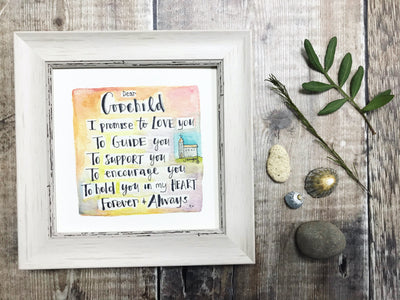 Dear
Godchild
I promise to LOVE you
To GUIDE you
To support you
To encourage you
To hold you in my HEART
Forever + Always